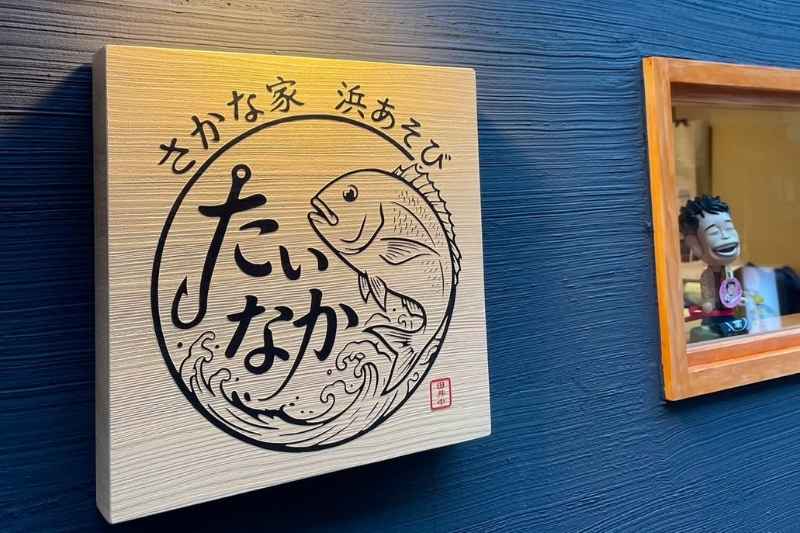 さかな家　浜あそび
たい
なか
田井中